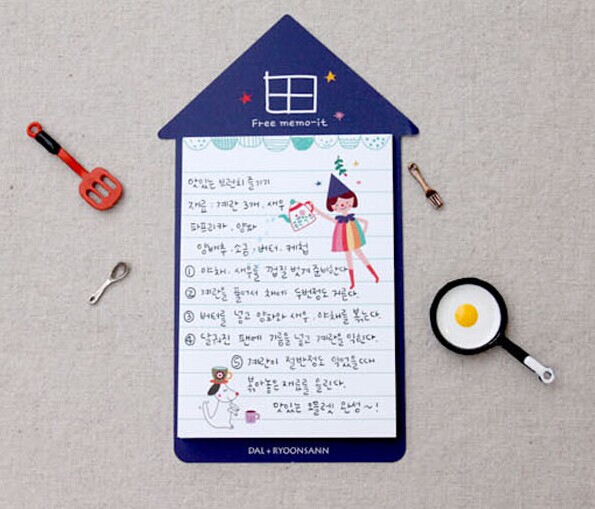 Free memo-it
맛있는 브런치 즐기기
재료 : 계란 3개, 새우
파프리카, 양파
양배추, 소금, 버터, 케첩
① 야채, 새우를 껍질 벗겨 준비한다.
② 계란을 풀어서 체에 두번정도 거른다.
③ 버터를 넣고 양파와 새우, 야채를 볶는다.
④ 달궈진 팬에 기름을 넣고 계란을 익힌다.
⑤ 계란이 절반정도 익었을때
볶아놓은 재료를 올린다.
맛있는 오믈렛 완성~!
DAL+RYOONSANN